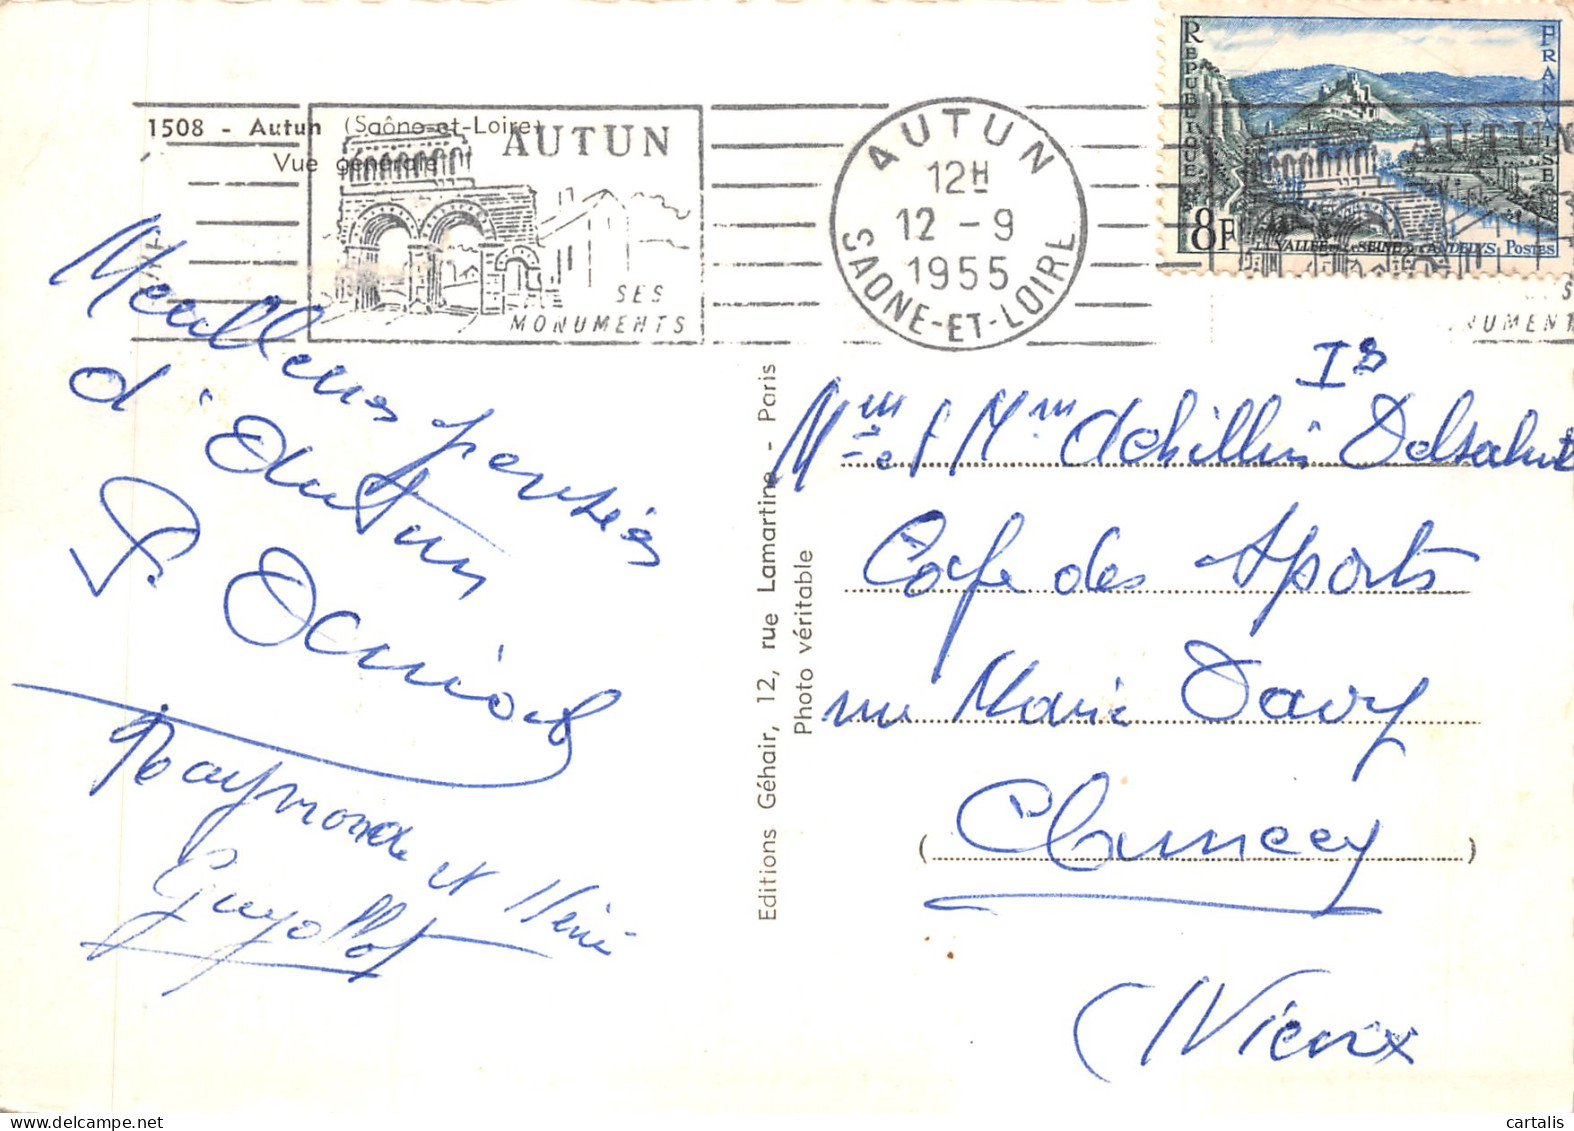 1508 - Autun (Saône-et-Loire)
Vue générale
AUTUN
SES
MONUMENTS
AUTUN
12H
12 - 9
1955
SAONE-ET-LOIRE
REPUBLIQUE FRANÇAISE
8F
LA VALLEE DE LA SEINE AUX ANDELYS. POSTES
AUTUN
Meilleures pensées
d'Autun
Raymonde et
Guyollot
Editions Géhair, 12, rue Lamartine - Paris
Photo véritable
Café des Sports
rue Marie Davy
Clamecy
(Nièvre